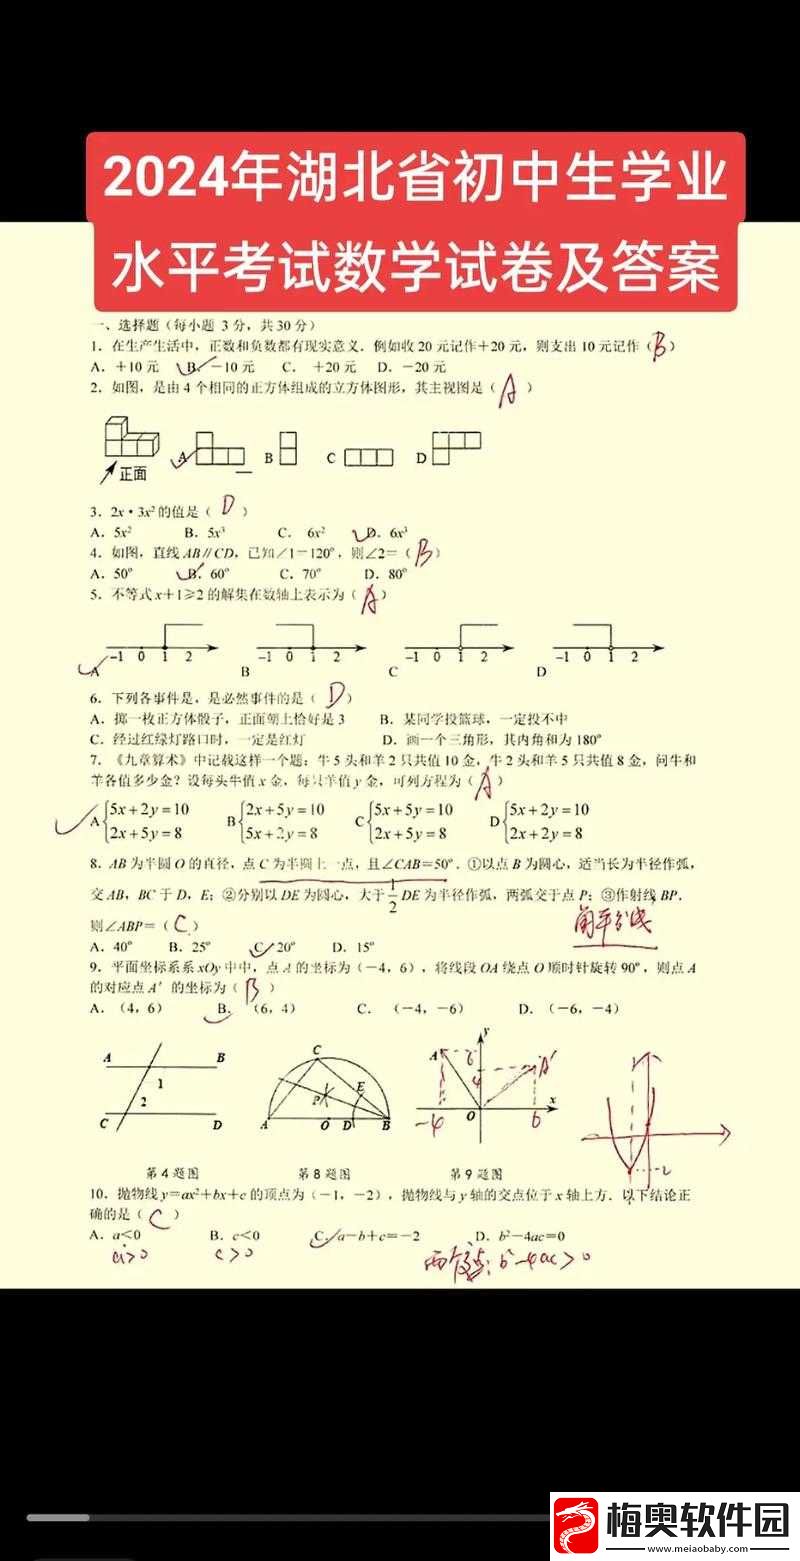 2024年湖北省初中生学业
水平考试数学试卷及答案
一、选择题（每小题 3分，共30分）
1．在生产生活中，正数和负数都有现实意义．例如收20元记作＋20元，则支出 10元记作（B）
A．＋10元 B．－10元 C． ＋20元 D．－20元
2．如图，是由 4 个相同的正方体组成的立方体图形，其主视图是（ A ）
A B C D
正面
3．2x·3x²的值是（ D ）
A．5x² B．5x³ C． 6x² D．6x³
4．如图，直线 AB∥CD，已知∠1＝120º，则∠2＝（ B ）
A．50º B．60º C．70º D．80º
5．不等式x＋1⩾2的解集在数轴上表示为（ A ）
-1 0 1 2 -1 0 1 2 -1 0 1 2 -1 0 1 2
A B C D
6．下列各事件是，是必然事件的是（ D ）
A．掷一枚正方体骰子，正面朝上恰好是3 B．某同学投篮球，一定投不中
C．经过红绿灯路口时，一定是红灯 D．画一个三角形，其内角和为180º
7．《九章算术》中记载这样一个题：牛5头和羊2只共值10金，牛2头和羊5只共值8金，问牛和
羊各值多少金？设每头牛值x金，每只羊值y金，可列方程为（ A ）
A{5x+2y=10 B{2x+5y=10 C{5x+5y=10 D{5x+2y=10
2x+5y=8 5x+2y=8 2x+5y=8 2x+2y=8
8．AB为半圆O的直径，点C为半圆上一点，且∠CAB＝50º．①以点B为圆心，适当长为半径作弧，
交AB，BC于D，E；②分别以DE为圆心，大于1/2DE为半径作弧，两弧交于点P；③作射线BP．
角平分线
则∠ABP＝（ C ）
A．40º B．25º C．20º D．15º
9．平面坐标系系xOy中中，点A的坐标为（－4，6），将线段OA绕点O顺时针旋转90º，则点A
的对应点A′的坐标为（ B ）
A．（4，6） B．（6，4） C．（－4，－6） D．（－6，－4）
A B 1 2 C D
C P E A O D B
A 6 4 A′ y -4 O 6 x
第4题图 第8题图 第9题图
10．抛物线y＝ax²＋bx＋c的顶点为（－1，－2），抛物线与y轴的交点位于x轴上方．以下结论正
确的是（ C ）
A．a<0 B．c<0 C．a－b＋c＝－2 D．b²－4ac＝0
a>0 c>0 两个交点：b²-4ac>0
梅奥软件园
www.meiaobaby.com